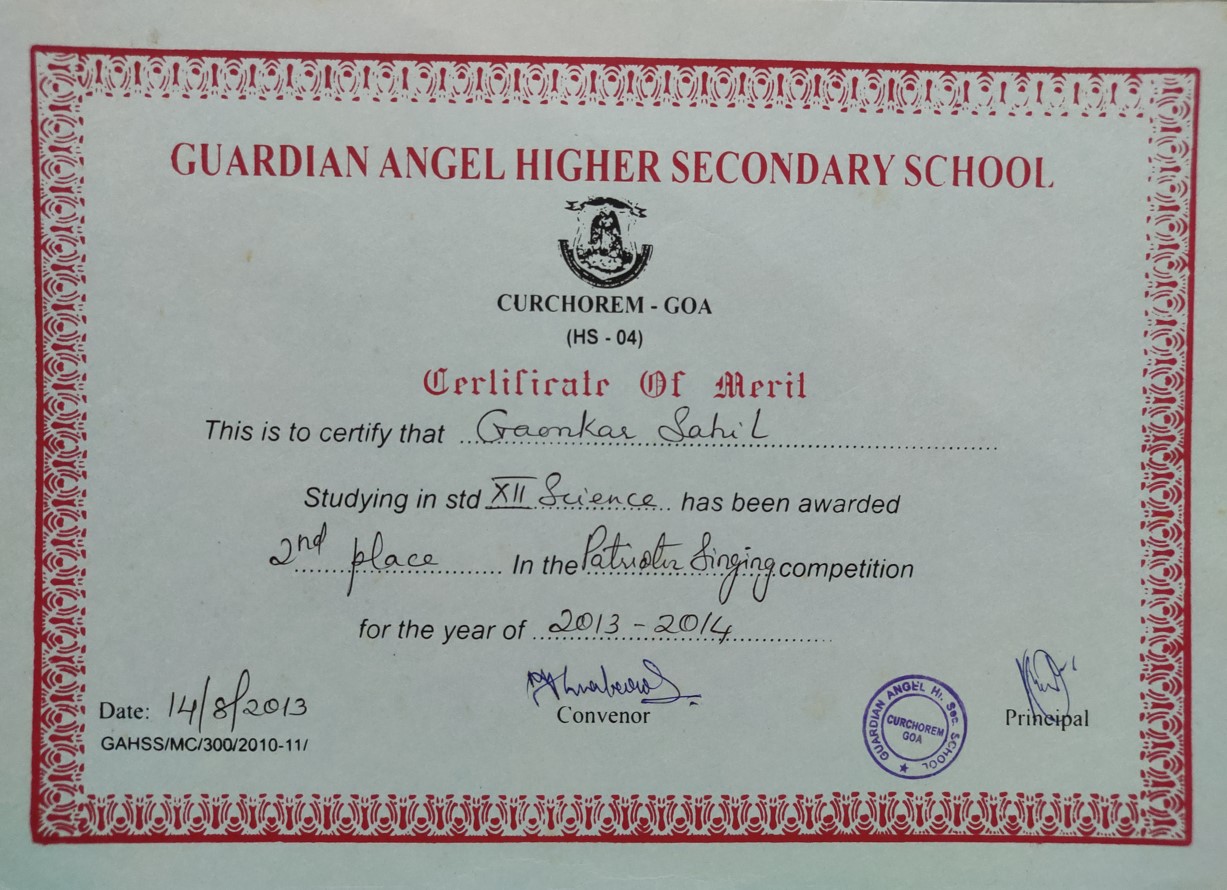 GUARDIAN ANGEL HIGHER SECONDARY SCHOOL
CURCHOREM - GOA
(HS - 04)
Certificate Of Merit
This is to certify that Gaonkar Sahil
Studying in std XII Science has been awarded
2nd place In the Patriotic Singing competition
for the year of 2013 - 2014
Date: 14/8/2013
Convenor
Principal
GAHSS/MC/300/2010-11/
GUARDIAN ANGEL Hr. Sec. SCHOOL
CURCHOREM
GOA